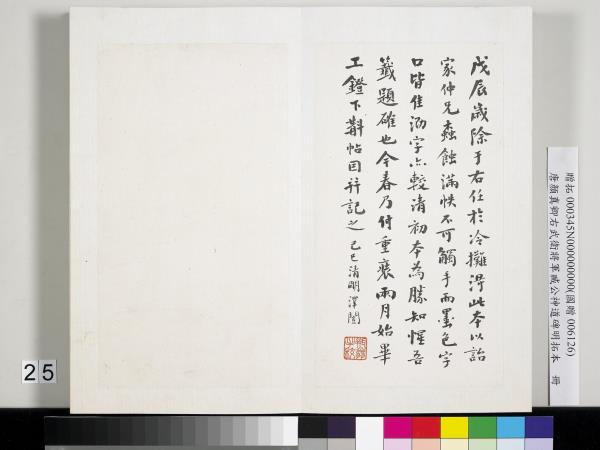 戊辰歲除于右任於冷攤得此本以詒
家仲兄蟲蝕滿帙不可觸手而墨色字
口皆佳泐字亦較清初本為勝知惺吾
籤題確也今春乃付重裝兩月始畢
工鐙下斠帖因并記之 己巳清明澤闓
贈拓 000345N000000000(國贈 006126)
唐顏真卿右武衛將軍臧公神道碑明拓本 冊
25